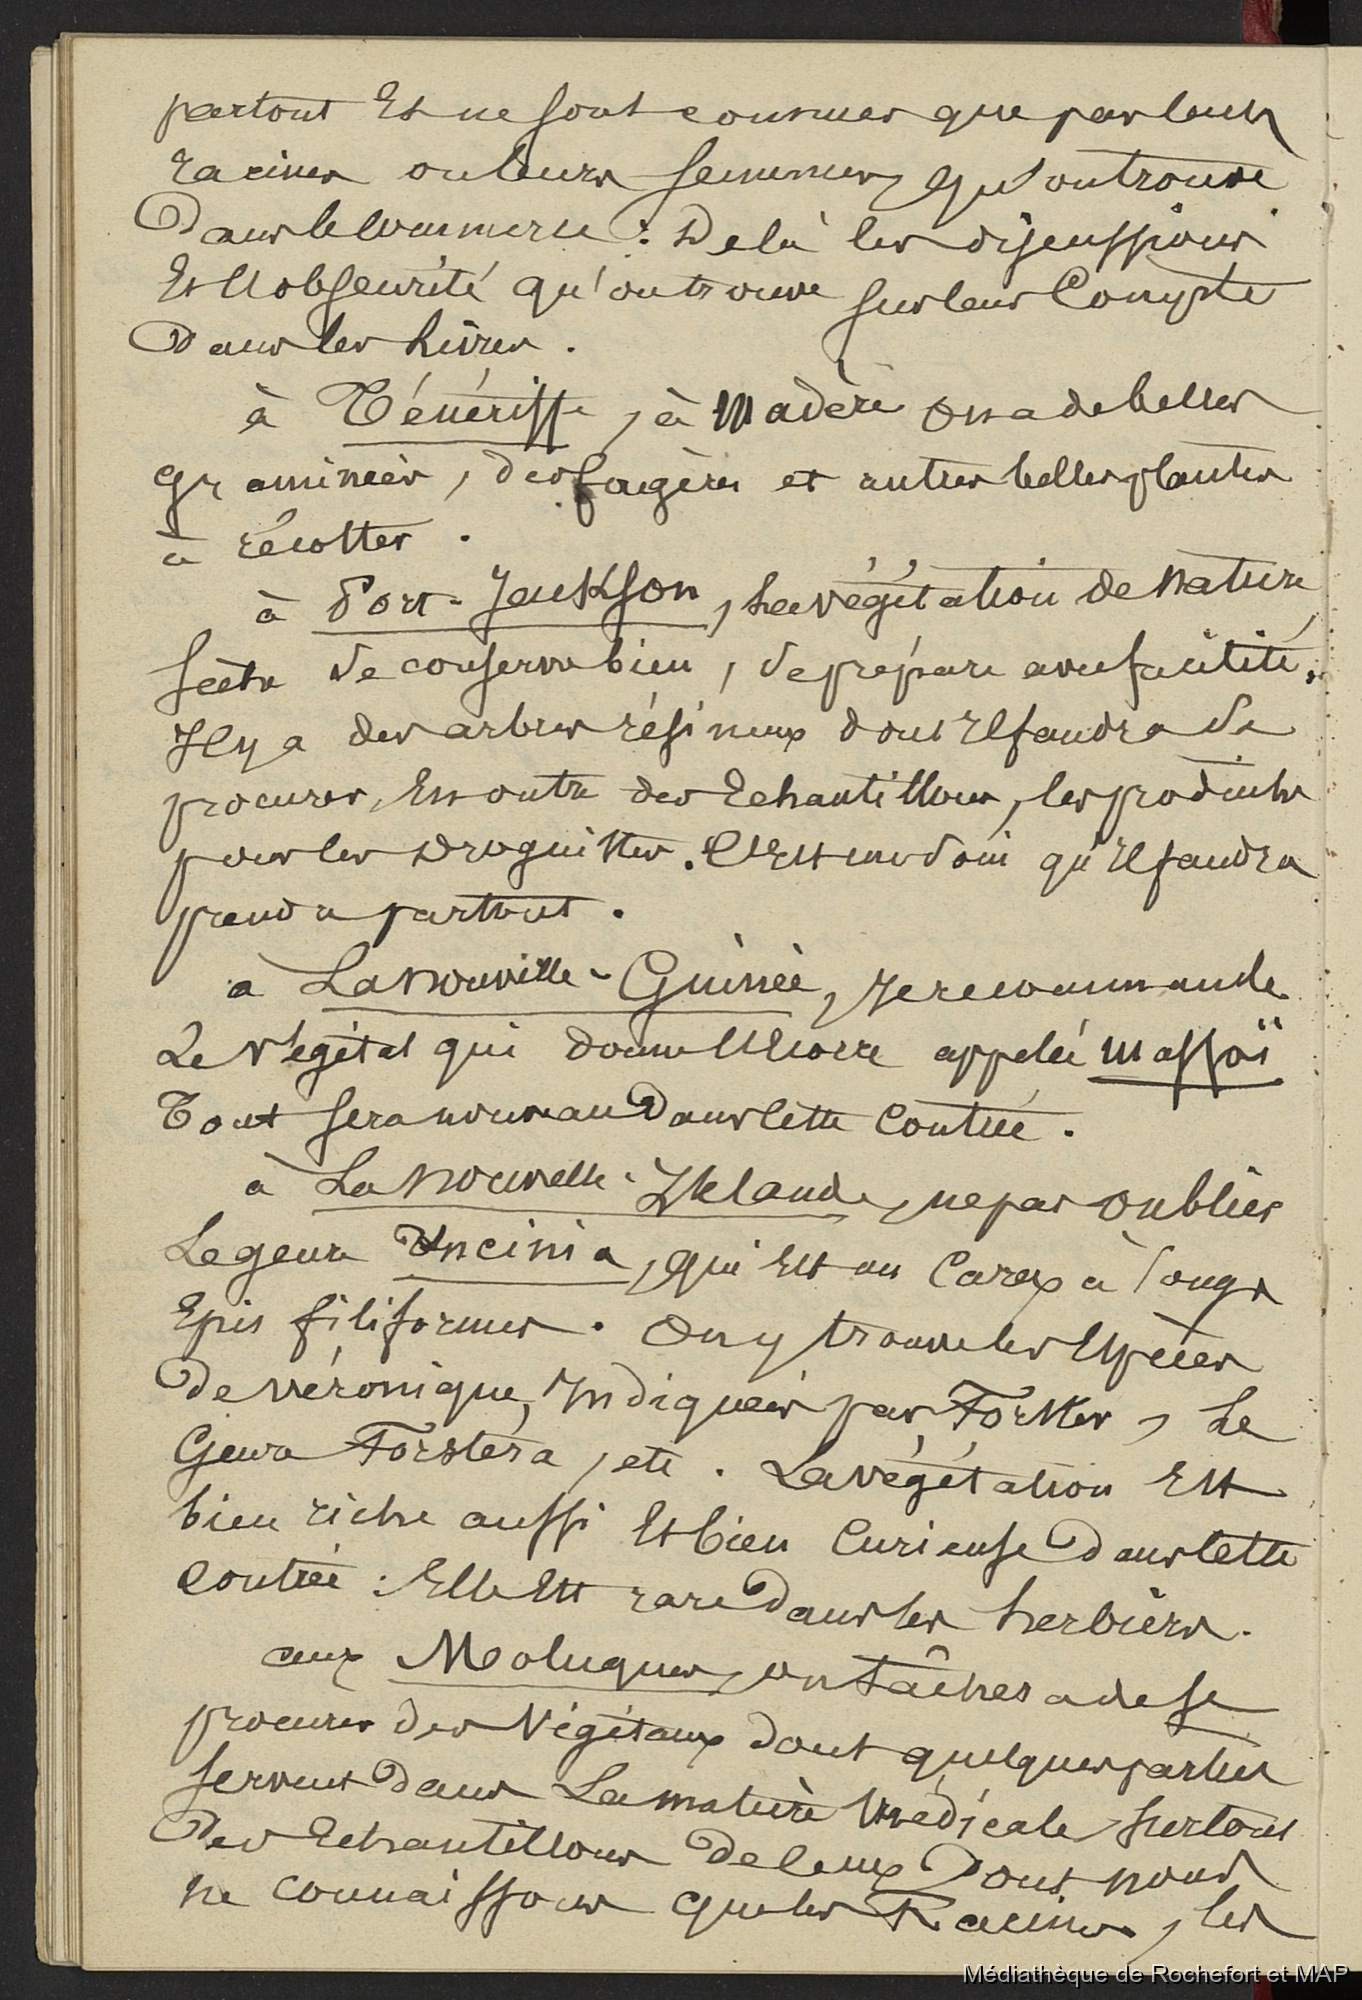 partout Et ne sont connues que par leurs
racines ou leurs semences qu'on trouve
Dans le commerce : De là les discussions
Et l'obscurité qu'on trouve sur leur Compte
Dans les Livres .
à Ténériffe , à Madère on a de belles
graminées , des fougères et autres belles plantes
à récolter .
à Port-Jackson , La végétation de nature
sèche se conserve bien , se prépare avec facilité .
Il y a des arbres résineux dont Il faudra se
procurer, En outre des Echantillons , les produits
pour les Droguistes . C'Est un soin qu'Il faudra
prendre partout .
à La Nouvelle-Guinée , Je recommande
Le Végétal qui donne l'Ecorce appelée Massoï
Tout sera nouveau Dans Cette Contrée .
à La Nouvelle-Zélande , ne pas oublier
Le genre Uncinia , qui Est un Carex à longs
Epis filiformes . On y trouve les Espèces
De véronique, Indiquées par Forster , Le
Genre Forstera , etc . La végétation Est
bien riche aussi Et bien Curieuse Dans Cette
Contrée : Elle Est rare Dans les herbiers .
aux Moluques , on tâchera de se
procurer des Végétaux dont quelques parties
servent Dans La matière Médicale , surtout
Des Echantillons De Ceux Dont nous
ne connaissons que les Racines , les
Médiathèque de Rochefort et MAP